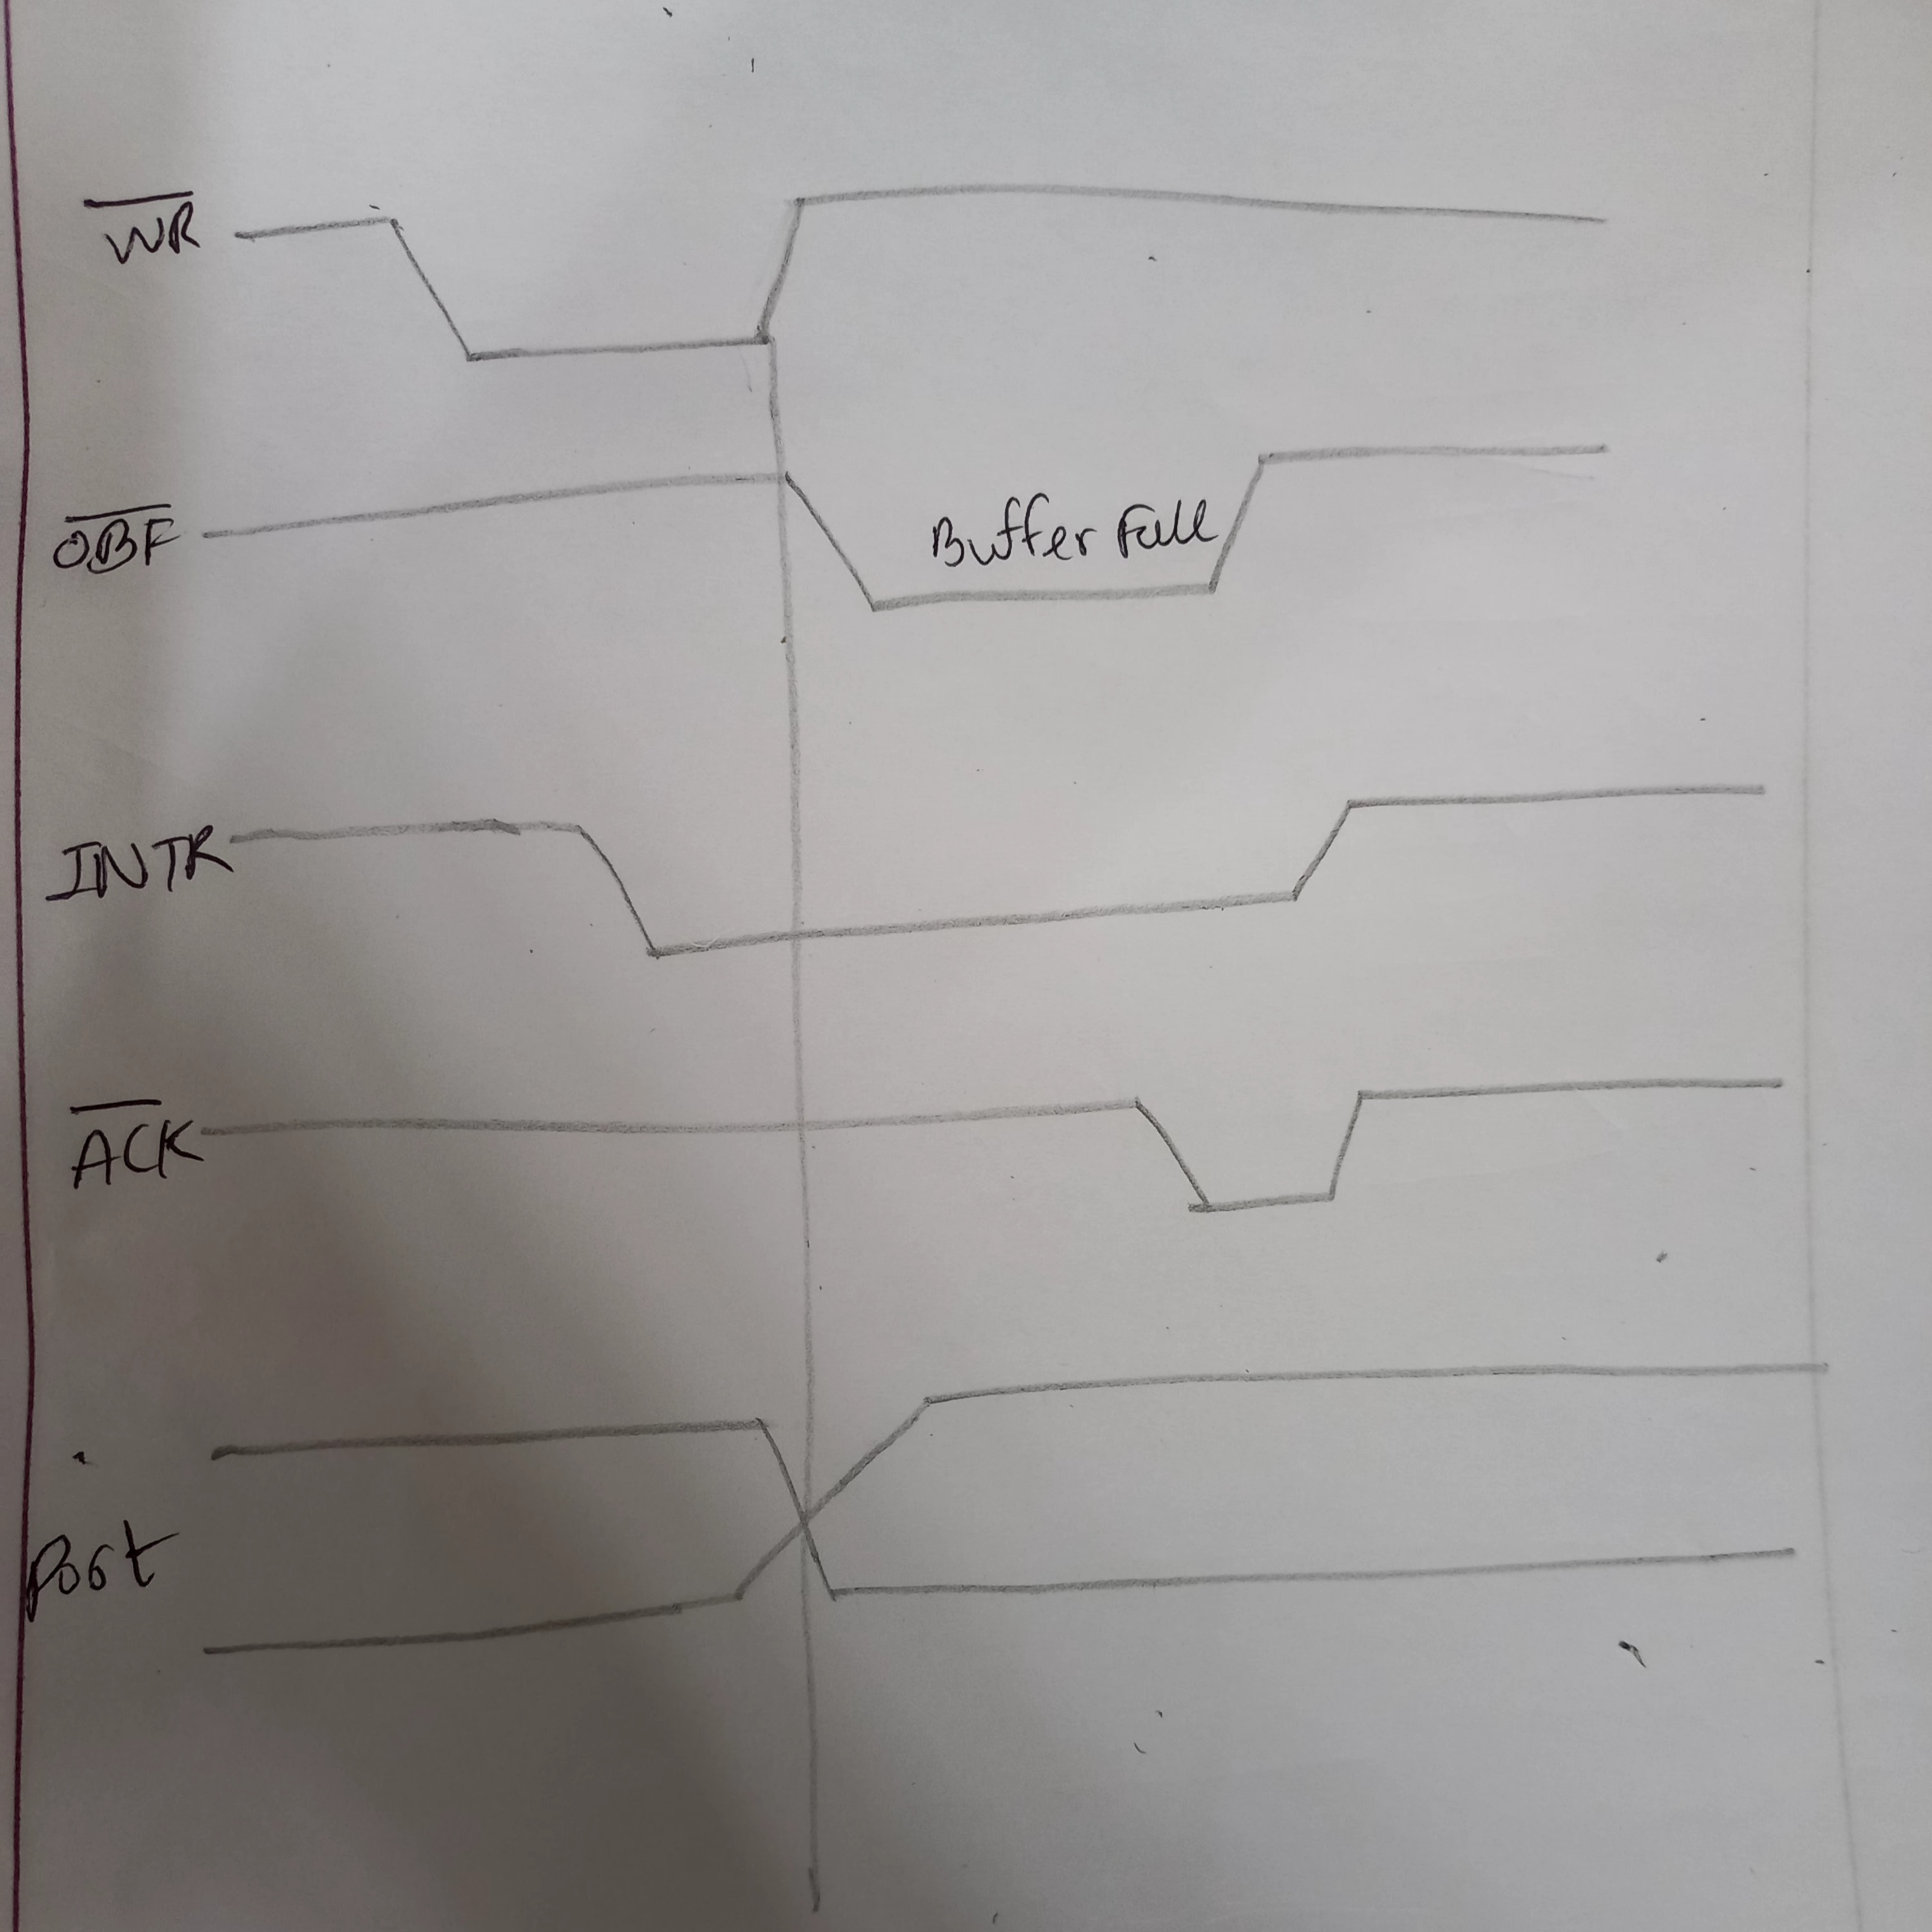 W̅R̅
O̅B̅F̅
Buffer Full
INTR
A̅C̅K̅
Port